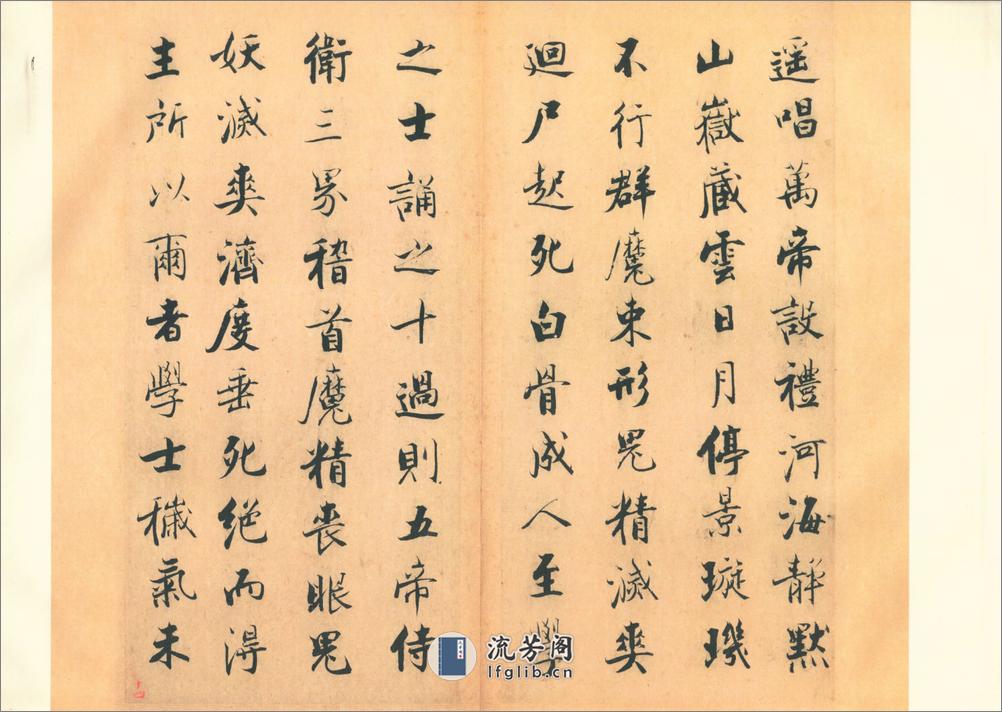 遥唱萬帝設禮河海靜默
山嶽藏雲日月停景璇璣
不行群魔束形鬼精滅爽
廻尸起死白骨成人至學
之士誦之十過則五帝侍
衛三界稽首魔精喪眼鬼
妖滅爽濟度垂死絕而得
主所以爾者學士穢氣未
十四
流芳阁
lfglib.cn